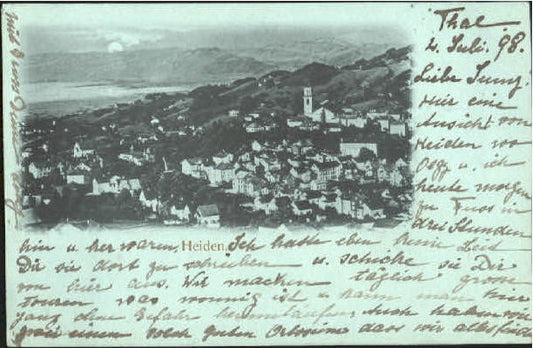 Thal
2. Juli. 98.
Liebe Jung.
Hier eine
Ansicht von
Heiden wo
u. ich
heute morgen
zu Fuss in
drei Stunden
hin u. her waren. Heiden. Ich hatte eben keine Zeit
Dir sie dort zu schreiben u. schicke sie Dir
von hier aus. Wir machen täglich grosse
touren was wonnig ist u. kann man hier
ganz ohne Gefahr herumlaufen. Auch haben wir
einen solch guten Ortssinn dass wir alles finden